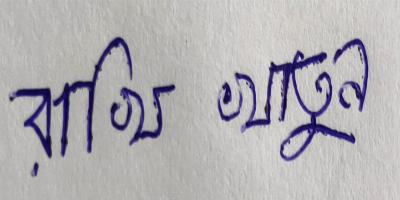 রাখি খাতুন